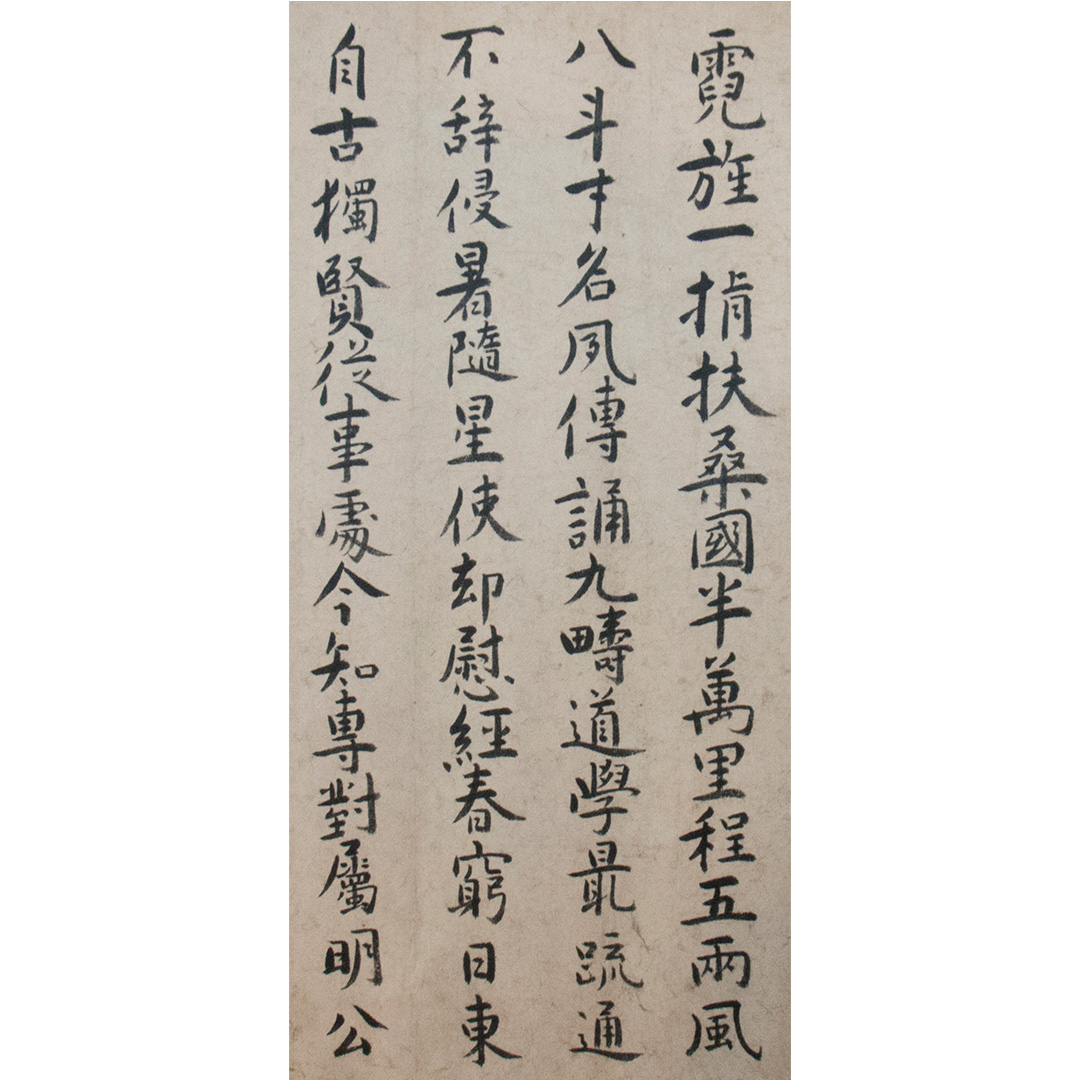 霓旌一指扶桑國半萬里程五兩風
八斗才名夙傳誦九疇道學最疏通
不辞侵暑隨星使却慰經春窮日東
自古獨賢從事處今知專對屬明公